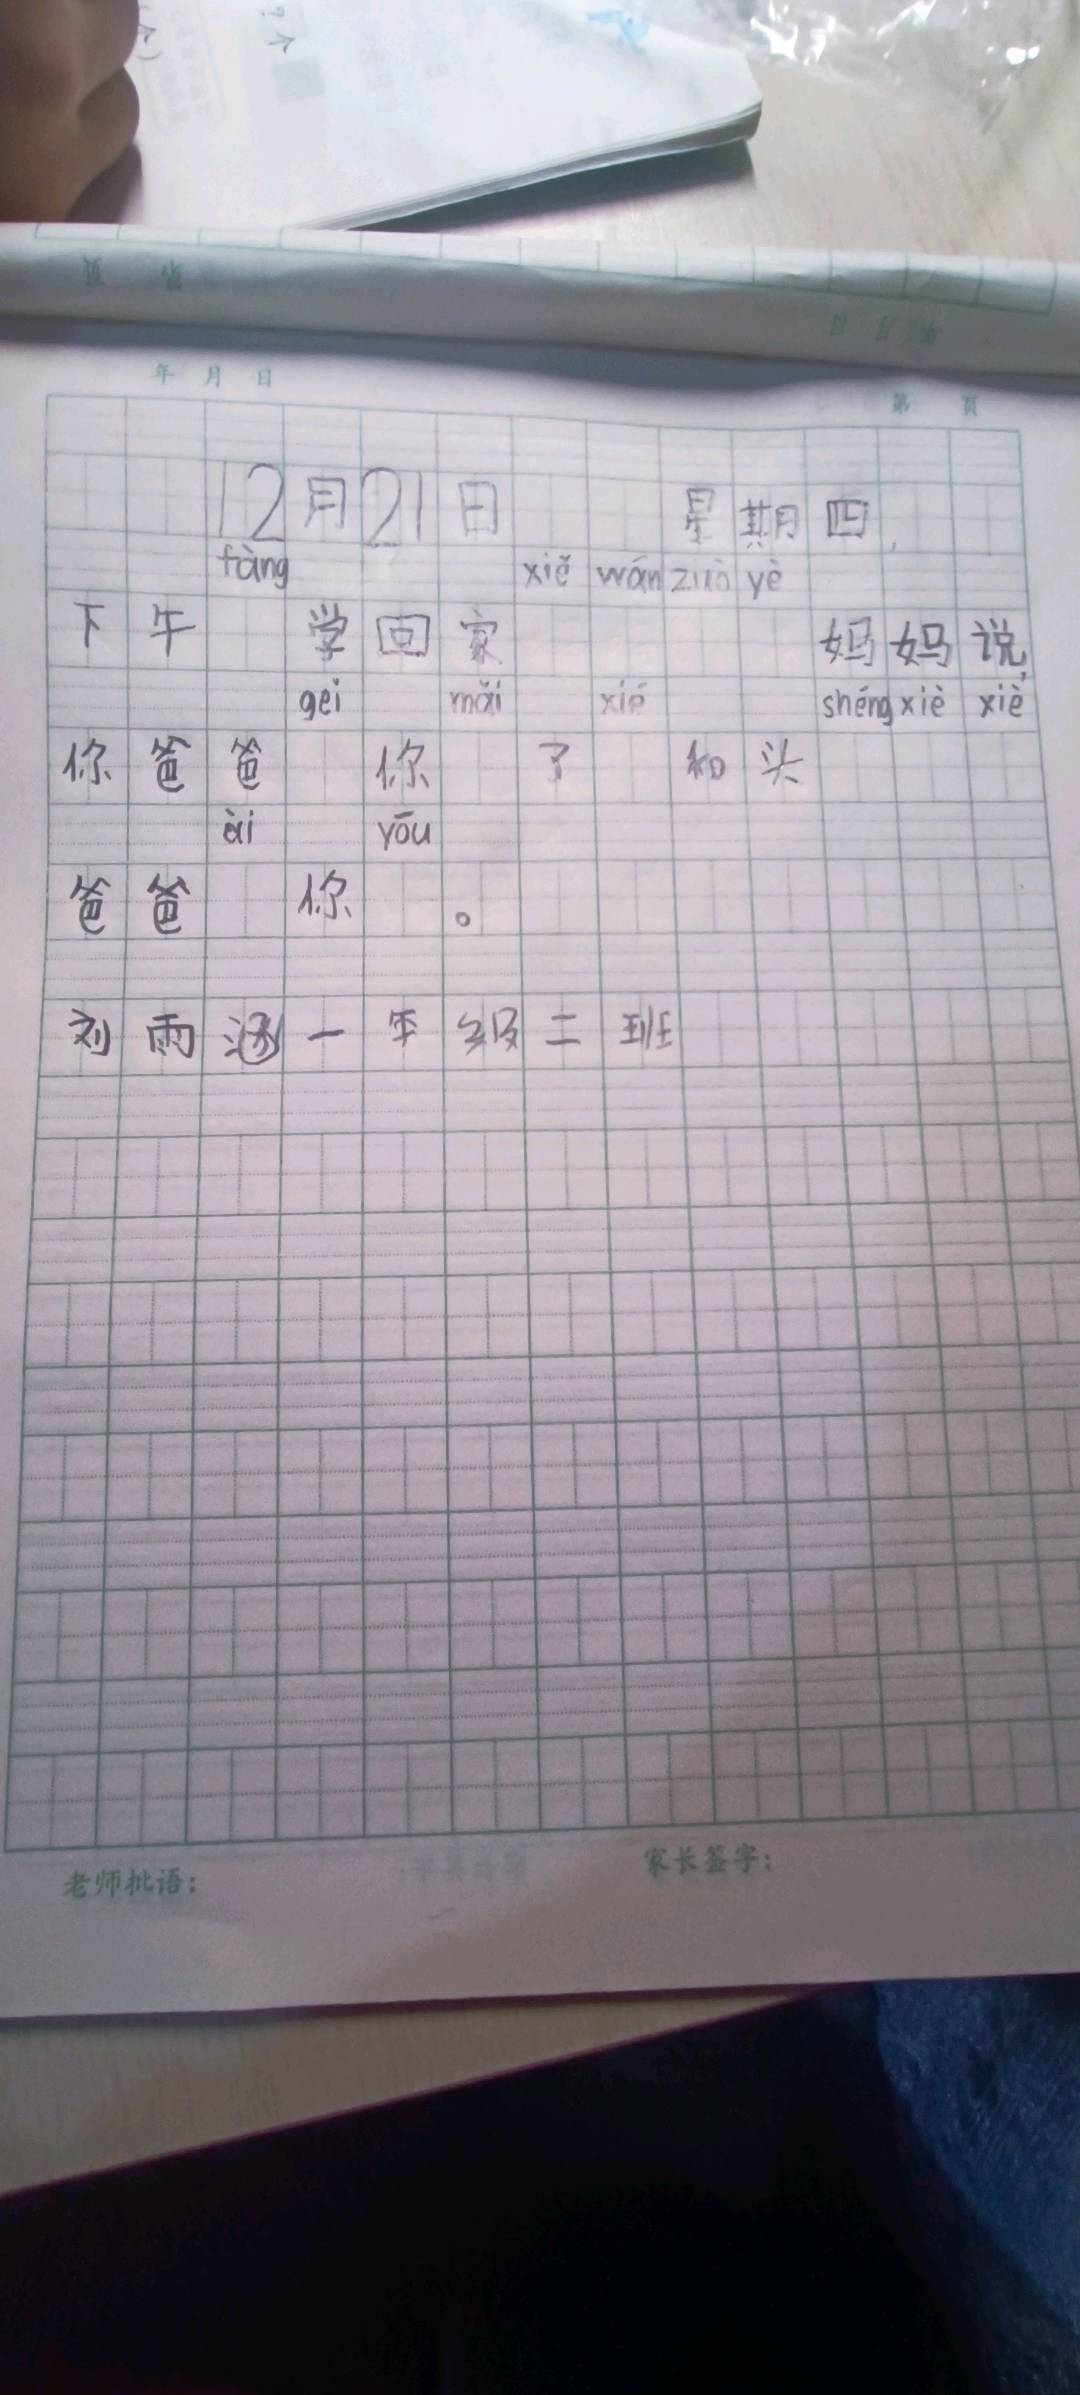 年 月 日
第 页
12月21日 星期四
fàng xiě wán zuò yè
下午 学回家 妈妈说,
gei mǎi xié shéng xiè xiè
你爸爸 你 了 和头
ài yōu
爸爸 你 。
刘雨涵一年级二班
老师批语: 家长签字: